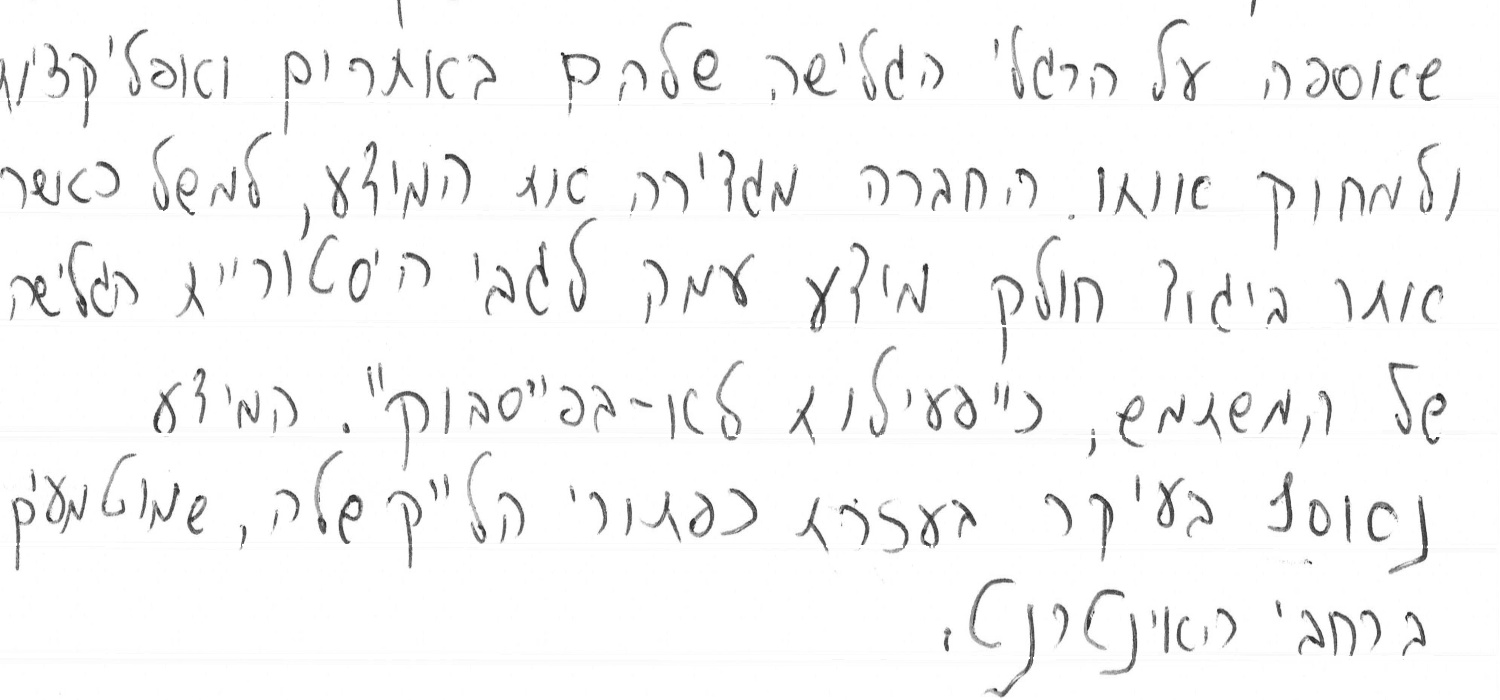 שאוספה על הרגלי הגלישה שלהם באתרים ואפליקציות
ולמחוק אותו. החברה מגדירה את המידע, למשל כאשר
אתר ביגוד חולק מידע עמק לגבי היסטוריית הגלישה
של המשתמש, כ"פעילות לא-בפייסבוק". המידע
נאסף בעיקר בעזרת כפתורי הלייק שלה, שמוטמעים
ברחבי האינטרנט.